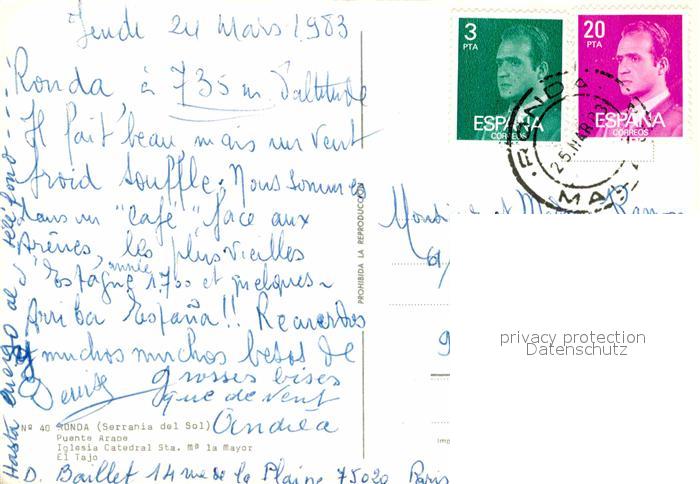 Jeudi 24 Mars 1983
Ronda à 735 m d'altitude
Il fait beau, mais un vent
froid souffle. Nous sommes
dans un "café" face aux
Arênes, les plus vieilles
d'Espagne année 1700 et quelques-
Arriba España!! Recuerdos
y muchos muchos besos de
Denise grosses bises
que de vent
Andréa
Hasta luego al teléfono...
Nº 40 RONDA (Serrania del Sol)
Puente Arabe
Iglesia Catedral Sta. Mª la Mayor
El Tajo
D. Baillet 14 rue de la Plaine 75020 Paris
PROHIBIDA LA REPRODUCCION
3
PTA
ESPAÑA
CORREOS
20
PTA
ESPAÑA
CORREOS
RONDA
25 MAR 83
MA
Monsieur et
61,
9
Imp
privacy protection
Datenschutz